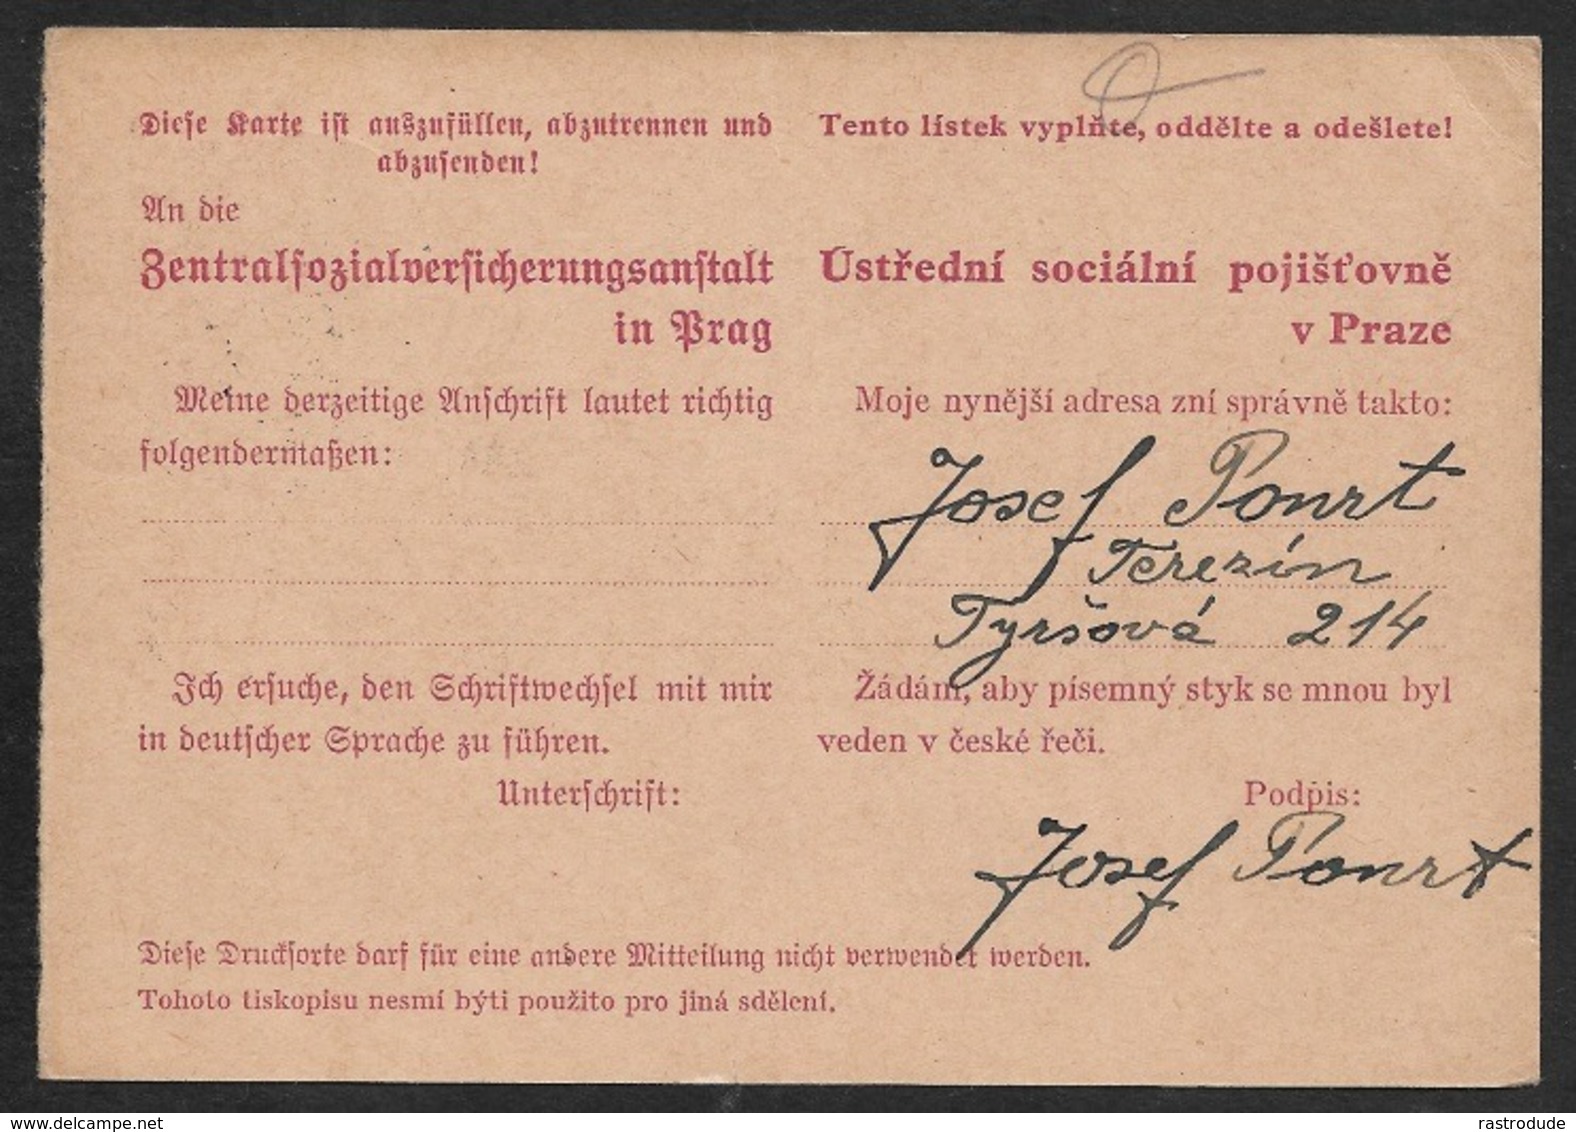 Diese Karte ist auszufüllen, abzutrennen und
abzusenden!
An die
Zentralsozialversicherungsanstalt
in Prag
Meine derzeitige Anschrift lautet richtig
folgendermaßen:
Ich ersuche, den Schriftwechsel mit mir
in deutscher Sprache zu führen.
Unterschrift:
Tento lístek vyplňte, oddělte a odešlete!
Ústřední sociální pojišťovně
v Praze
Moje nynější adresa zní správně takto:
Josef Ponrt
Terezín
Tyršová 214
Žádám, aby písemný styk se mnou byl
veden v české řeči.
Podpis:
Josef Ponrt
Diese Drucksorte darf für eine andere Mitteilung nicht verwendet werden.
Tohoto tiskopisu nesmí býti použito pro jiná sdělení.
www.delcampe.net
rastrodude